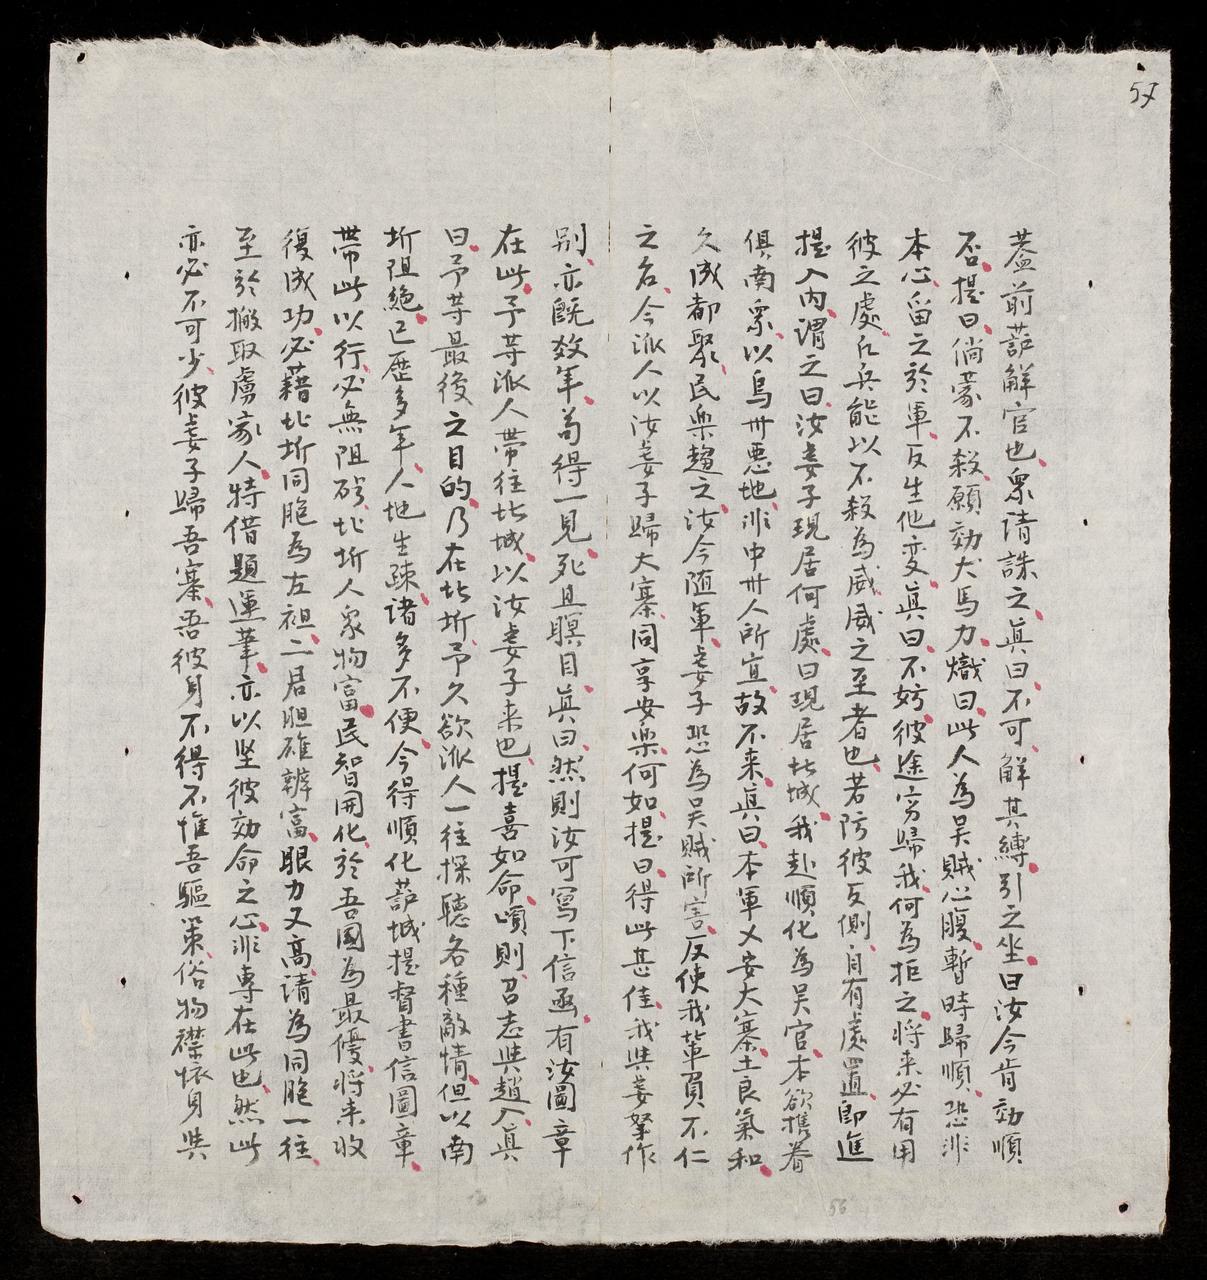 57
葢前葫觧官也衆请誅之眞曰不可觧其縛引之坐曰汝今肯効順
否提曰倘蒙不殺願効犬馬力熾曰此人為吴賊心腹暫時歸順恐非
本心留之於軍反生他变眞曰不妨彼途穷歸我何為拒之将来必有用
彼之處凣兵能以不殺為威威之至者也若防彼反側自有處置即進
提入内謂之曰汝妻子現居何處曰現居北城我赴順化為吴官本欲携眷
俱南衆以烏州悪地非中州人所宜故不来眞曰本軍乂安大寨土良氣和
久成都聚民楽趋之汝今随軍妻子恐為吴賊所害反使我輩負不仁
之名今派人以汝妻子歸大寨同享安楽何如提曰得此甚佳我與妻孥作
别亦既数年苟得一見死且瞑目眞曰然則汝可寫下信函有汝圖章
在此予等派人帶往北城以汝妻子来也提喜如命頃則召志與趙入眞
曰予等最後之目的乃在北圻予久欲派人一往探聴各種敵情但以南
圻阻絶已歷多年人地生疎諸多不便今得順化葫城提督書信圖章
帶此以行必無阻碍北圻人衆物富民智開化於吾國為最優将来收
復成功必藉北圻同胞為左袒二居胆雄辨富眼力又高请為同胞一往
至於搬取虜家人特借題運筆亦以坚彼効命之心非専在此也然此
亦必不可少彼妻子歸吾寨吾彼身不得不惟吾驅策俗物襟懷身與
56